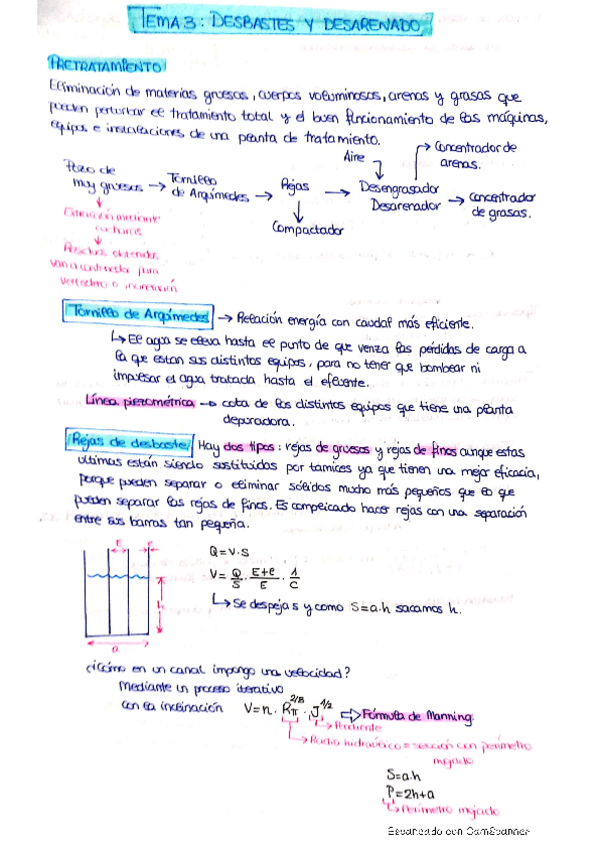 TEMA 3: DESBASTES Y DESARENADO
PRETRATAMIENTO
Eliminación de materias gruesas, cuerpos voluminosos, arenas y grasas que
pueden perturbar el tratamiento total y el buen funcionamiento de las máquinas,
equipos e instalaciones de una planta de tratamiento.
Pozo de muy gruesos → Tornillo de Arquímedes → Rejas → Desengrasador Desarenador → Concentrador de grasas.
Aire
Concentrador de arenas.
Compactador
Extracción mediante
cucharas
Residuos obtenidos
van a contenedor para
vertedero o incineración
Tornillo de Arquímedes → Relación energía con caudal más eficiente.
↳ El agua se eleva hasta el punto de que venza las pérdidas de carga a
la que estan sus distintos equipos, para no tener que bombear ni
impulsar el agua tratada hasta el efluente.
Línea piezométrica → cota de los distintos equipos que tiene una planta
depuradora.
Rejas de desbaste Hay dos tipos: rejas de gruesos y rejas de finos aunque estas
ultimas están siendo sustituidas por tamices ya que tienen una mejor eficacia,
porque pueden separar o eliminar sólidos mucho más pequeños que lo que
pueden separar las rejas de finos. Es complicado hacer rejas con una separación
entre sus barras tan pequeña.
E e
h
a
Q = V·S
V = Q/S · E+e/E · 1/C
↳ Se despeja s y como S=a·h sacamos h.
¿Cómo en un canal impongo una velocidad?
Mediante un proceso iterativo
con la inclinación V = n · R_π^2/3 · J^1/2 ⇨ Fórmula de Manning
→ Pendiente
→ Radio hidráulico = sección con perímetro
mojado
S=a·h
P=2h+a
↳ Perímetro mojado
Escaneado con CamScanner